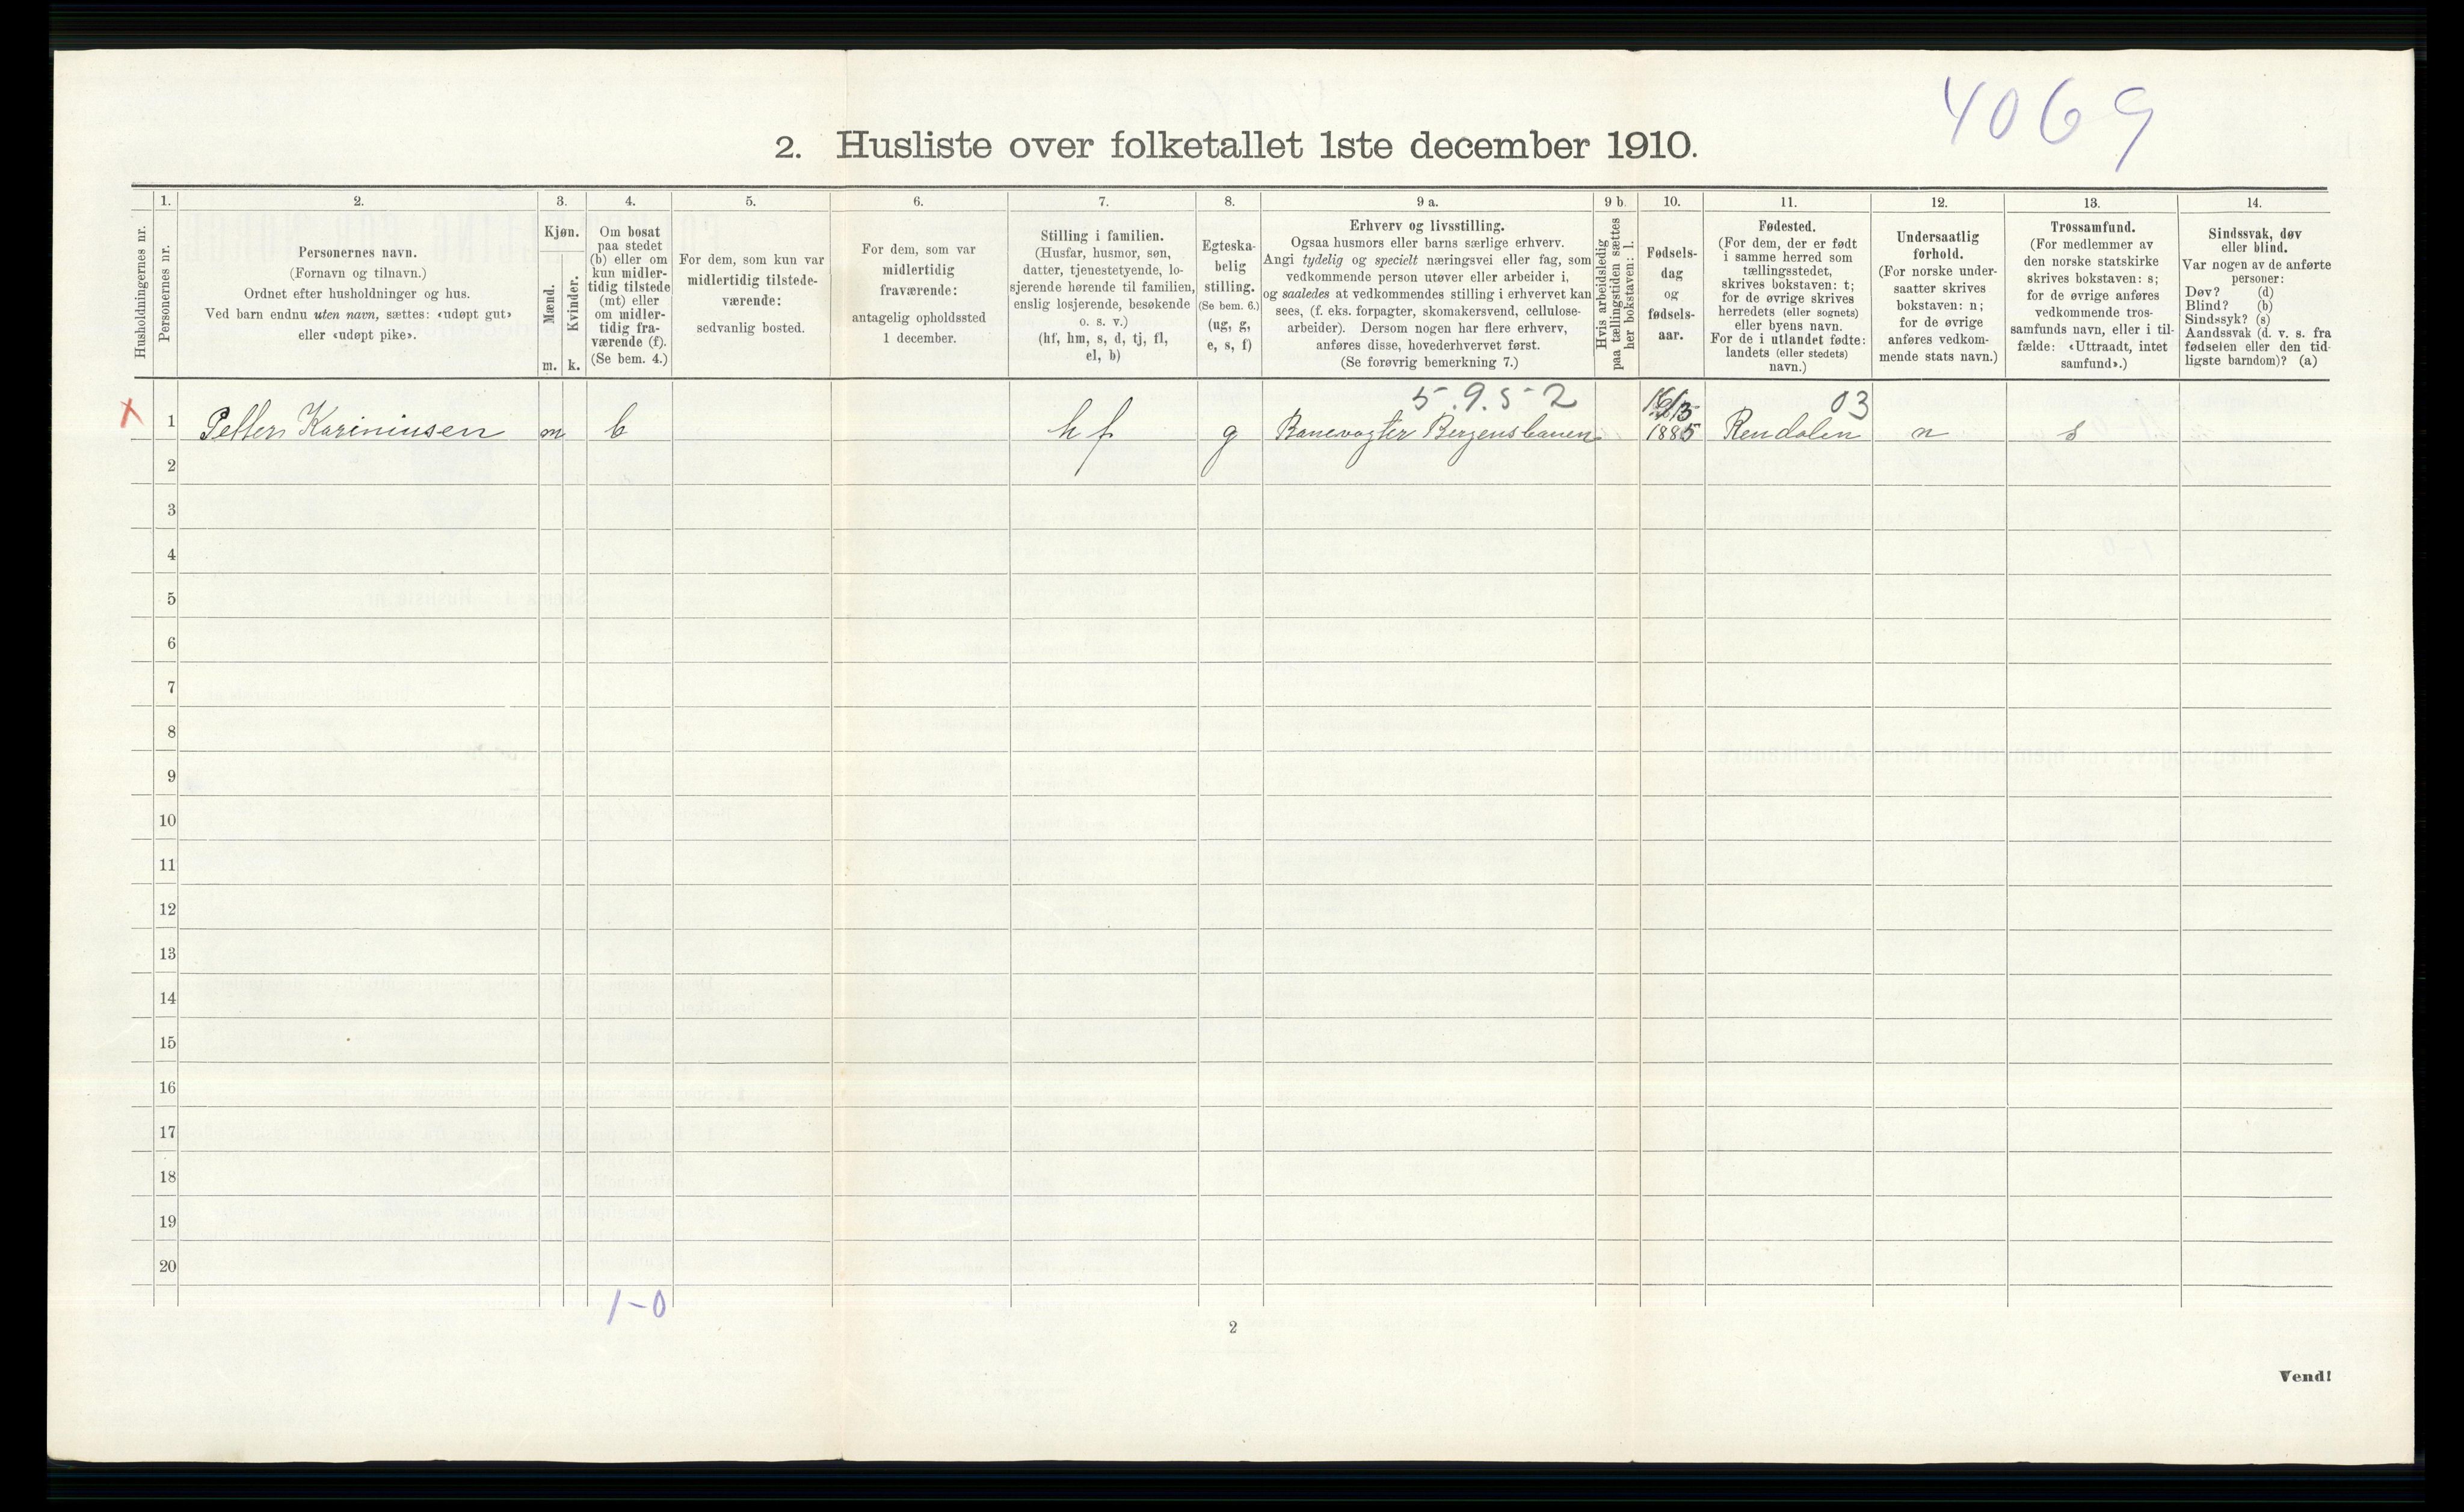 4069
2. Husliste over folketallet 1ste december 1910.
Husholdningernes nr.
1.
Personernes nr.
2.
Personernes navn.
(Fornavn og tilnavn.)
Ordnet efter husholdninger og hus.
Ved barn endnu uten navn, sættes: «udøpt gut»
eller «udøpt pike».
3.
Kjøn.
Mænd.
Kvinder.
m. k.
4.
Om bosat
paa stedet
(b) eller om
kun midler-
tidig tilstede
(mt) eller
om midler-
tidig fra-
værende (f).
(Se bem. 4.)
5.
For dem, som kun var
midlertidig tilstede-
værende:
sedvanlig bosted.
6.
For dem, som var
midlertidig
fraværende:
antagelig opholdssted
1 december.
7.
Stilling i familien.
(Husfar, husmor, søn,
datter, tjenestetyende, lo-
sjerende hørende til familien,
enslig losjerende, besøkende
o. s. v.)
(hf, hm, s, d, tj, fl,
el, b)
8.
Egteska-
belig
stilling.
(Se bem. 6.)
(ug, g,
e, s, f)
9 a.
Erhverv og livsstilling.
Ogsaa husmors eller barns særlige erhverv.
Angi tydelig og specielt næringsvei eller fag, som
vedkommende person utøver eller arbeider i,
og saaledes at vedkommendes stilling i erhvervet kan
sees, (f. eks. forpagter, skomakersvend, cellulose-
arbeider). Dersom nogen har flere erhverv,
anføres disse, hovederhvervet først.
(Se forøvrig bemerkning 7.)
9 b.
Hvis arbeidsledig
paa tællingstiden sættes
her bokstaven: l.
10.
Fødsels-
dag
og
fødsels-
aar.
11.
Fødested.
(For dem, der er født
i samme herred som
tællingsstedet,
skrives bokstaven: t;
for de øvrige skrives
herredets (eller sognets)
eller byens navn.
For de i utlandet fødte:
landets (eller stedets)
navn.)
12.
Undersaatlig
forhold.
(For norske under-
saatter skrives
bokstaven: n;
for de øvrige
anføres vedkom-
mende stats navn.)
13.
Trossamfund.
(For medlemmer av
den norske statskirke
skrives bokstaven: s;
for de øvrige anføres
vedkommende tros-
samfunds navn, eller i til-
fælde: «Uttraadt, intet
samfund».)
14.
Sindssvak, døv
eller blind.
Var nogen av de anførte
personer:
Døv? (d)
Blind? (b)
Sindssyk? (s)
Aandssvak (d. v. s. fra
fødselen eller den tid-
ligste barndom)? (a)
5.9.52 03
x 1 Petter Kariniusen m b hf g Banevogter Bergensbanen 1885 Rendalen n s
2
3
4
5
6
7
8
9
10
11
12
13
14
15
16
17
18
19
20
1-0
2
Vend!